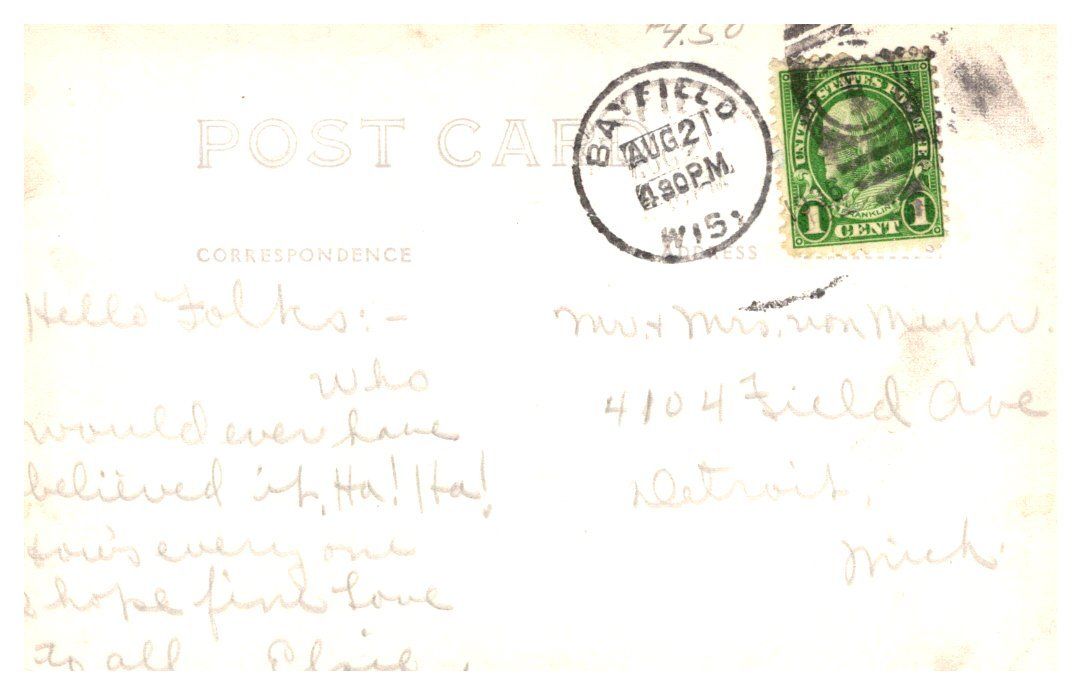 4.50
POST CARD
BAYFIELD
AUG 21
4 30 PM
WIS.
UNITED STATES POSTAGE
FRANKLIN
1 CENT 1
CORRESPONDENCE
ADDRESS
Hello Folks:-
Who
would ever have
believed it, Ha! Ha!
How's every one
hope fine Love
to all
Mr. & Mrs. von Meyer.
4104 Field Ave
Detroit,
Mich.